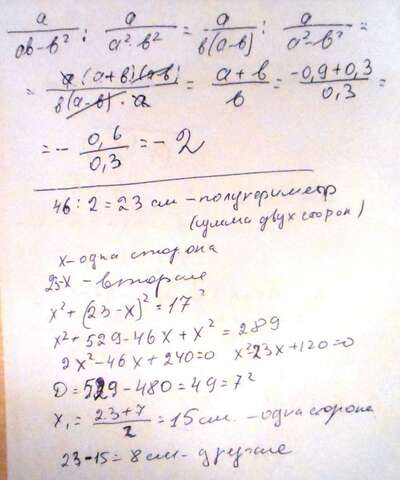 a/(ab-b²) : a/(a²·b²) = a/(в(a-в)) : a/(a²-в²) =
= a·(a+в)(a-в)/(в(a-в)·a) = (a+в)/в = (-0,9+0,3)/0,3 =
= - 0,6/0,3 = - 2
46 : 2 = 23 см - полупериметр
(сумма двух сторон)
x - одна сторона
23-x - вторая
x² + (23 - x)² = 17²
x² + 529 - 46x + x² = 289
2x² - 46x + 240 = 0 x² - 23x + 120 = 0
D = 529 - 480 = 49 = 7²
x₁ = (23+7)/2 = 15 см. - одна сторона
23 - 15 = 8 см - другая